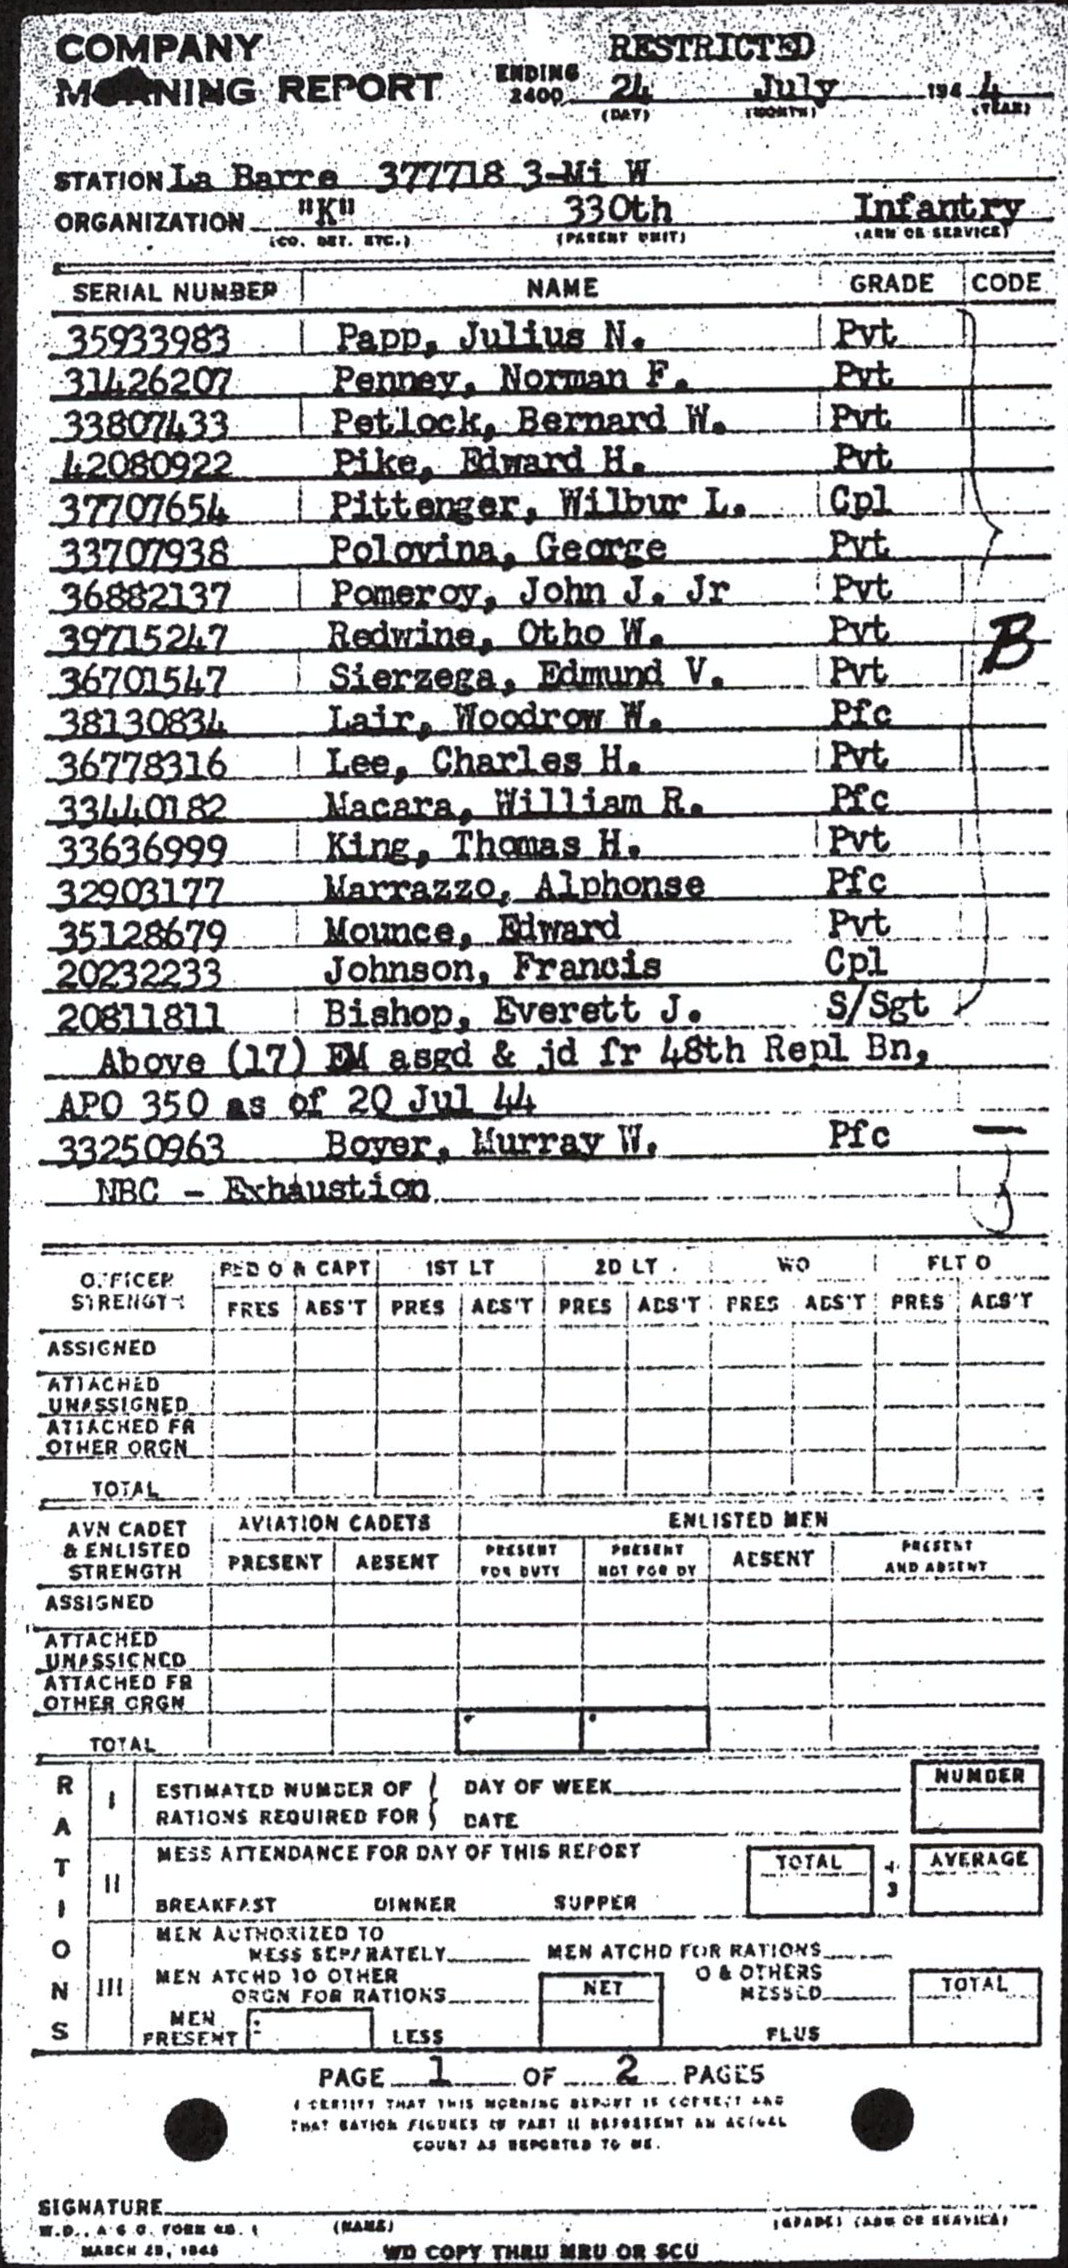 COMPANY RESTRICTED
MORNING REPORT ENDING 2400 24 July 194 4
(DAY) (MONTH) (YEAR)
STATION La Barre 377718 3-Mi W
ORGANIZATION "K" 330th Infantry
(CO. DET. ETC.) (PARENT UNIT) (ARM OR SERVICE)
SERIAL NUMBER NAME GRADE CODE
35933983 Papp, Julius N. Pvt
31426207 Penney, Norman F. Pvt
33807433 Petlock, Bernard W. Pvt
42080922 Pike, Edward H. Pvt
37707654 Pittenger, Wilbur L. Cpl
33707938 Polovina, George Pvt
36882137 Pomeroy, John J. Jr Pvt
39715247 Redwine, Otho W. Pvt B
36701547 Sierzega, Edmund V. Pvt
38130834 Lair, Woodrow W. Pfc
36778316 Lee, Charles H. Pvt
33440182 Macara, William R. Pfc
33636999 King, Thomas H. Pvt
32903177 Marrazzo, Alphonse Pfc
35128679 Mounce, Edward Pvt
20232233 Johnson, Francis Cpl
20811811 Bishop, Everett J. S/Sgt
Above (17) EM asgd & jd fr 48th Repl Bn,
APO 350 as of 20 Jul 44
33250963 Boyer, Murray W. Pfc
NBC - Exhaustion
OFFICER STRENGTH & CAPT 1ST LT 2D LT. WO FLT O
PRES ABS'T PRES ABS'T PRES ABS'T PRES ABS'T PRES ABS'T
ASSIGNED
ATTACHED UNASSIGNED
ATTACHED FR OTHER ORGN
TOTAL
AVN CADET & ENLISTED STRENGTH AVIATION CADETS ENLISTED MEN
PRESENT ABSENT PRESENT FOR DUTY PRESENT NOT FOR DY ABSENT PRESENT AND ABSENT
ASSIGNED
ATTACHED UNASSIGNED
ATTACHED FR OTHER ORGN
TOTAL
RATIONS
I ESTIMATED NUMBER OF RATIONS REQUIRED FOR DAY OF WEEK NUMBER
DATE
II MESS ATTENDANCE FOR DAY OF THIS REPORT TOTAL ÷ 3 AVERAGE
BREAKFAST DINNER SUPPER
III MEN AUTHORIZED TO MESS SEPARATELY MEN ATCHD FOR RATIONS
MEN ATCHD TO OTHER ORGN FOR RATIONS NET O & OTHERS MESSED TOTAL
MEN PRESENT LESS PLUS
PAGE 1 OF 2 PAGES
I CERTIFY THAT THIS MORNING REPORT IS CORRECT AND
THAT RATION FIGURES IN PART II REPRESENT AN ACTUAL
COUNT AS REPORTED TO ME.
SIGNATURE
(NAME) (GRADE) (ARM OR SERVICE)
W.D., A.G.O. FORM NO. 1
WD COPY THRU MRU OR SCU